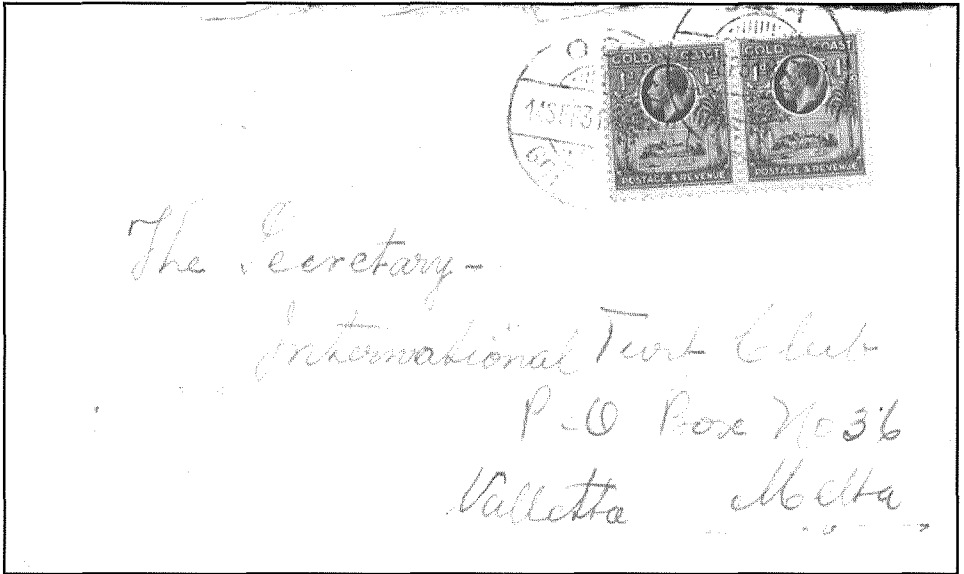 GOLD COAST
1D 1D
POSTAGE & REVENUE
GOLD COAST
1D 1D
POSTAGE & REVENUE
The Secretary-
International Turf Club
P-O Box No 36
Valletta Malta